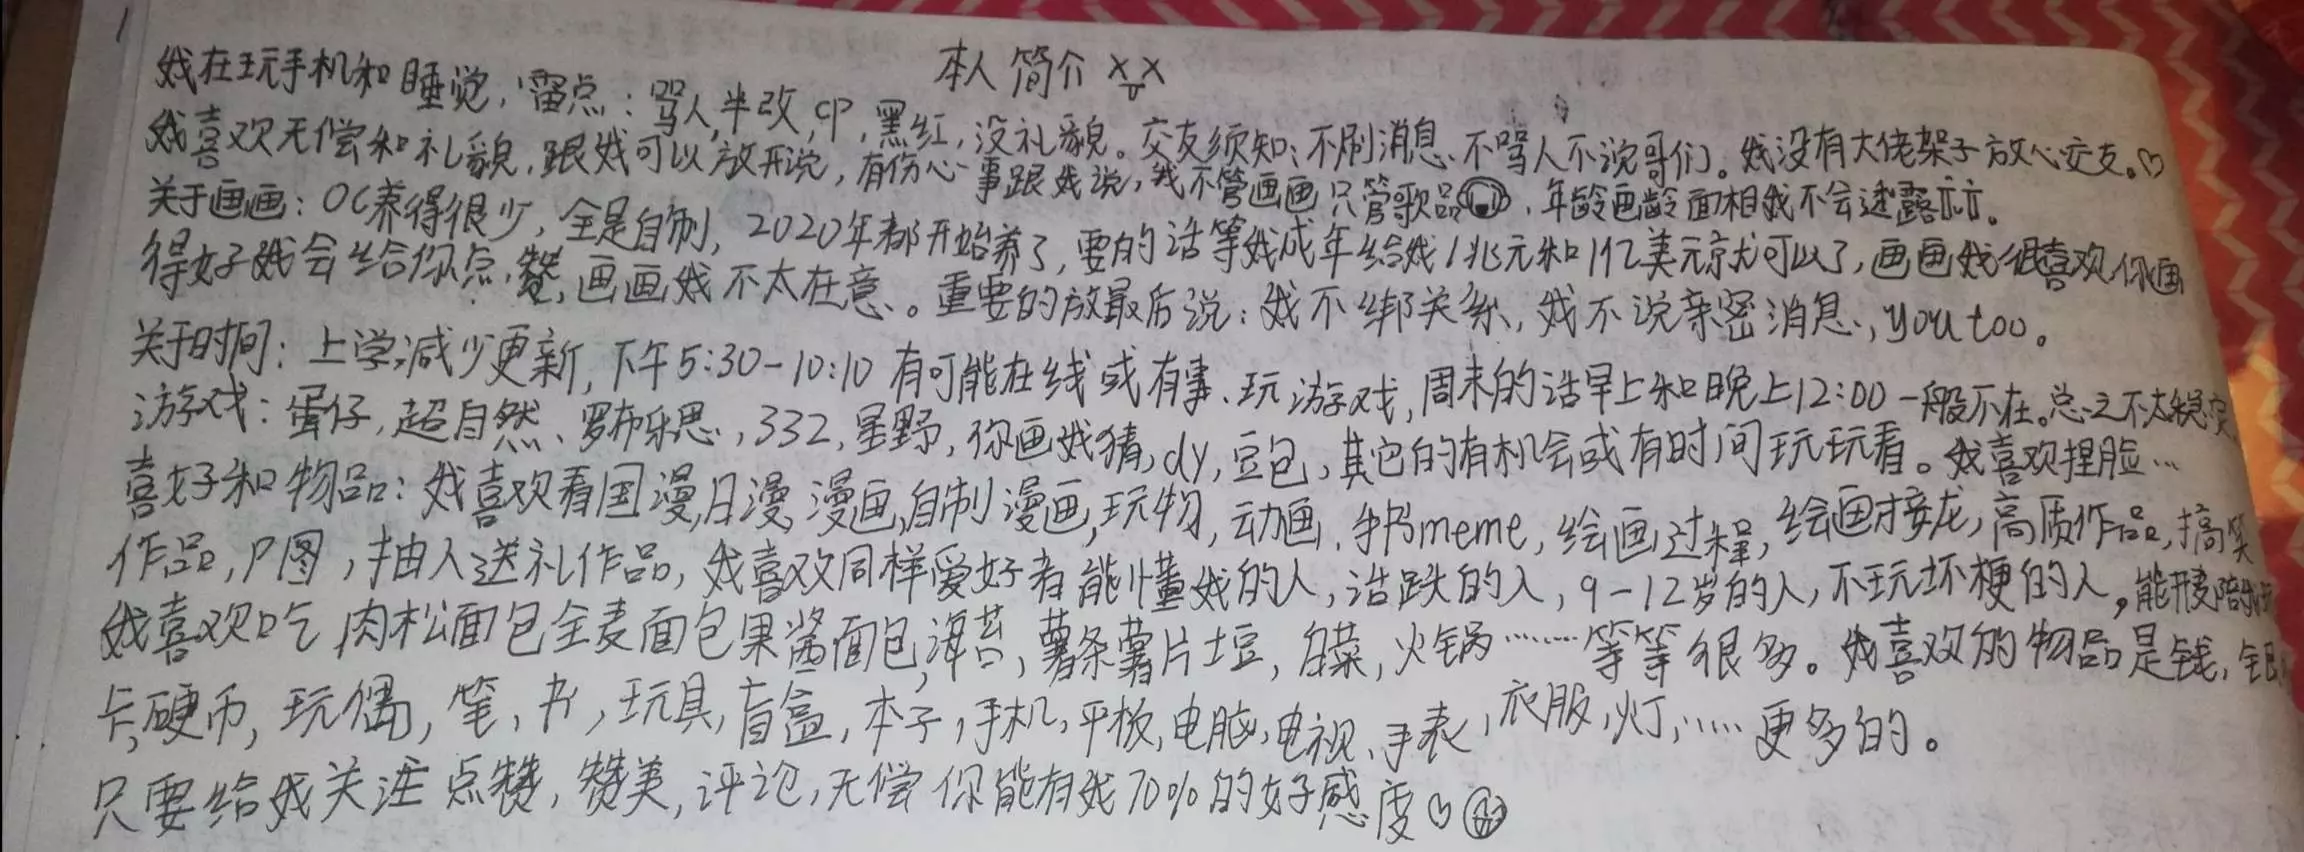 1
本人简介 x x
娥在玩手机和睡觉，雷点：骂人，半改，cp，黑红，没礼貌。交友须知：不刷消息、不骂人不说哥们。娥没有大佬架子放心交友。♡
娥喜欢无偿和礼貌，跟娥可以放开说，有伤心事跟娥说，我不管画画只管歌品，年龄画龄面相娥不会透露
关于画画：OC养得很少，全是自制，2020年都开始养了，要的话等娥成年给娥1兆元和1亿美元就可以了，画画娥很喜欢你画
得好娥会给你点赞，画画娥不太在意。重要的放最后说：娥不绑关系，娥不说亲密消息，you too。
关于时间：上学减少更新，下午5:30-10:10有可能在线或有事、玩游戏，周末的话早上和晚上12:00一般不在。总之不太稳定
游戏：蛋仔，超自然、罗布乐思，332，星野，你画娥猜，dy，豆包，其它的有机会或有时间玩玩看。娥喜欢捏脸…
喜好和物品：娥喜欢看国漫，日漫，漫画，自制漫画，玩物，动画、手书meme，绘画过程，绘画接龙，高质作品，搞笑
作品，P图，抽人送礼作品，娥喜欢同样爱好者能懂娥的人，活跃的人，9-12岁的人，不玩坏梗的人，能
娥喜欢吃肉松面包全麦面包果酱面包，海苔，薯条薯片土豆，白菜，火锅……等等很多。娥喜欢的物品是钱，银
卡，硬币，玩偶，笔，书，玩具，盲盒，本子，手机，平板，电脑，电视、手表，衣服，灯，……更多的。
只要给娥关注点赞，赞美，评论，无偿你能有娥70%的好感度♡